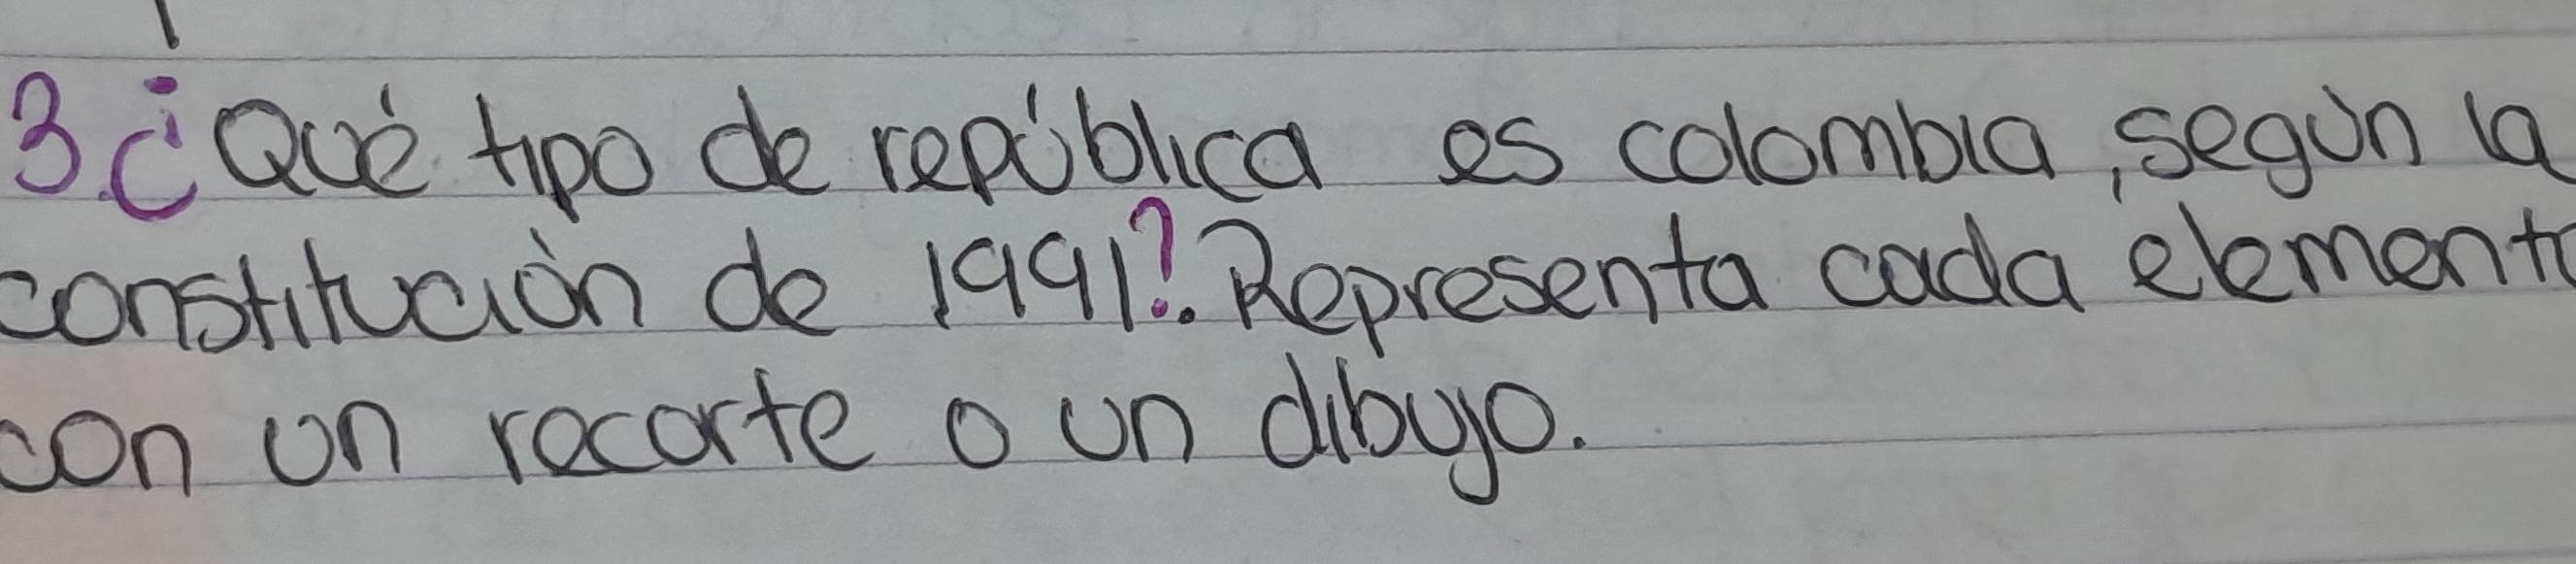 3.¿Qué tipo de república es colombia, según la
constitución de 1991?. Representa cada elemento
con un recorte o un dibujo.